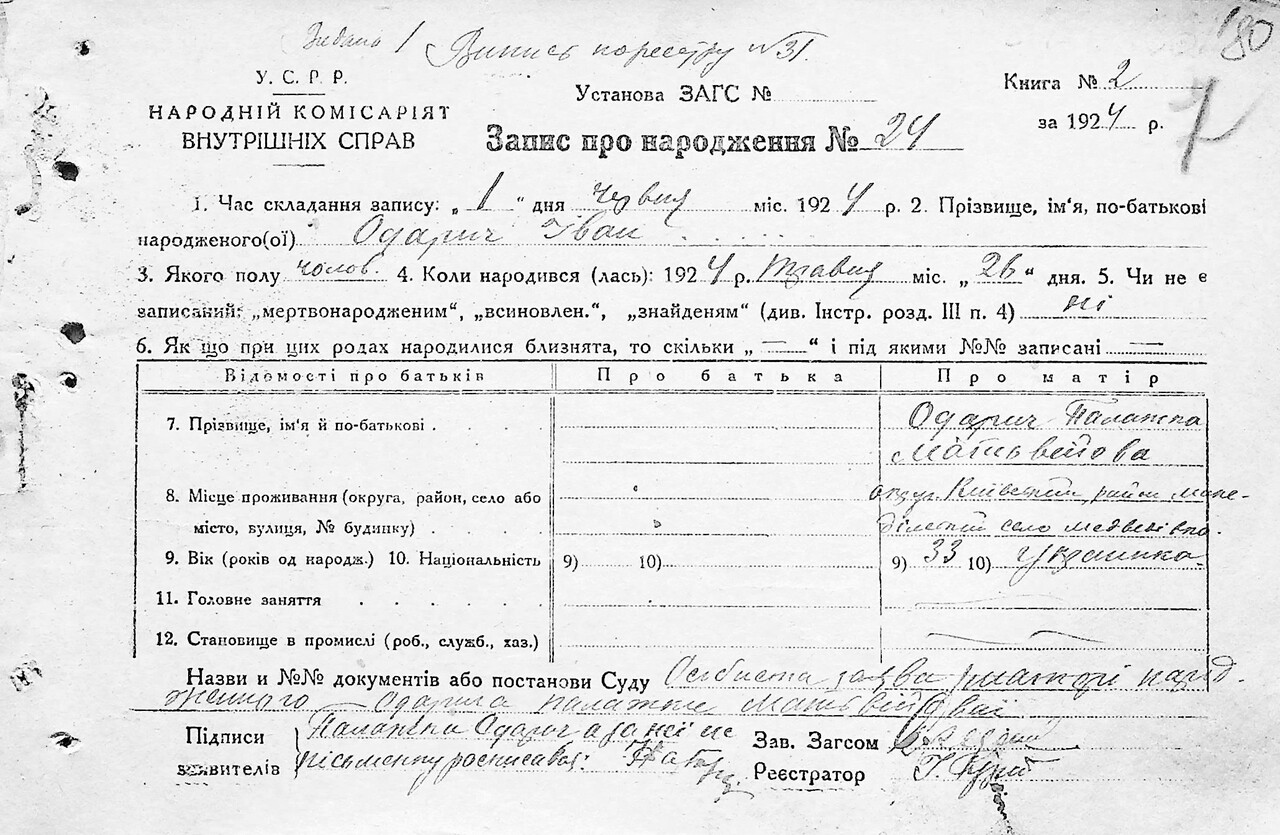 180
Випись по реєстру №31.
У. С. Р. Р.
НАРОДНІЙ КОМІСАРІЯТ
ВНУТРІШНІХ СПРАВ
Установа ЗАГС №
Книга № 2
за 1924 р.
Запис про народження № 24
1. Час складання запису: „ 1 “ дня червня міс. 1924 р. 2. Прізвище, ім'я, по-батькові
народженого(ої) Одарич Іван
3. Якого полу чолов. 4. Коли народився (лась): 1924 р. травня міс. „ 26 “ дня. 5. Чи не є
записаний: „мертвонародженим“, „всиновлен.“, „знайденям“ (див. Інстр. розд. III п. 4) ні
6. Як що при цих родах народилися близнята, то скільки „ — “ і під якими №№ записані —
Відомості про батьків Про батька Про матір
7. Прізвище, ім'я й по-батькові . Одарич Палажка
Матьвейова
8. Місце проживання (округа, район, село або округ. Київський, район
місто, вулиця, № будинку) . село
9. Вік (років од народж.) 10. Національність 9) 10) 9) 33 10) Українка
11. Головне заняття . . . . . .
12. Становище в промислі (роб., служб., хаз.)
Назви и №№ документів або постанови Суду Особиста заява матері народ-
женного Одарич Палажки
Підписи Палажки Одарич а за неї не
заявителів письменну росписався:
Зав. Загсом
Реєстратор